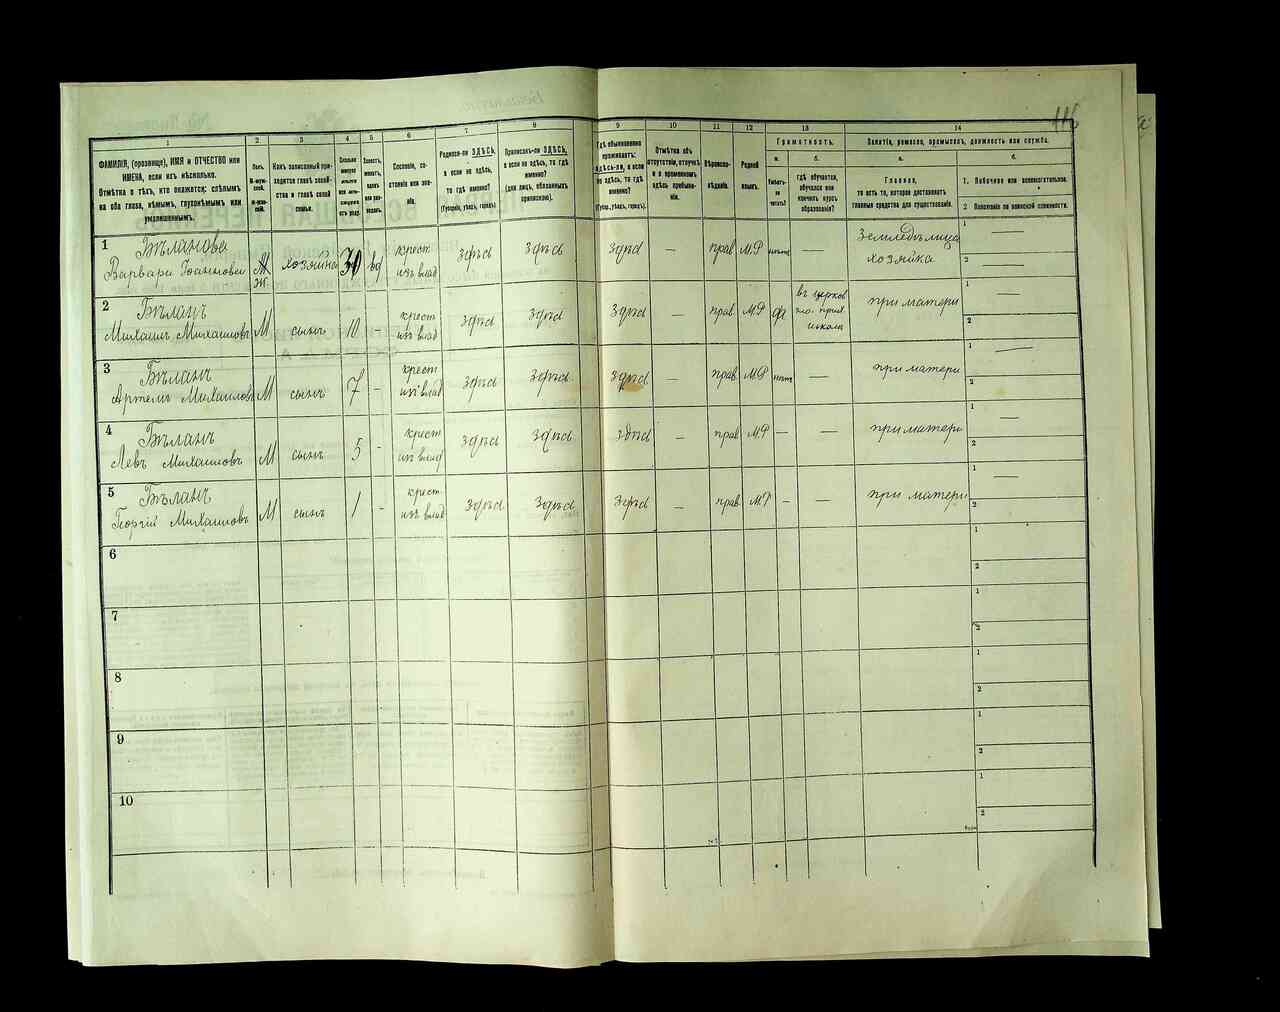 116
1 2 3 4 5 6 7 8 9 10 11 12 13 14
ФАМИЛІЯ, (прозвище), ИМЯ и ОТЧЕСТВО или
ИМЕНА, если ихъ нѣсколько.
Отмѣтка о тѣхъ, кто окажется: слѣпымъ
на оба глаза, нѣмымъ, глухонѣмымъ или
умалишеннымъ.
Полъ.
М-мужской.
Ж-женскій.
Какъ записанный приходится
главѣ хозяйства
и главѣ своей
семьи.
Сословіе, состояніе
или званіе.
Родился-ли ЗДѢСЬ,
а если не здѣсь,
то гдѣ именно?
(Губернія, уѣздъ, городъ).
Приписанъ-ли ЗДѢСЬ,
а если не здѣсь, то гдѣ
именно?
(для лицъ, обязанныхъ
припискою).
Гдѣ обыкновенно
проживаетъ:
здѣсь-ли, а если
не здѣсь, то гдѣ
именно?
(Губер., уѣздъ, городъ).
Отмѣтка объ
отсутствіи, отлучкѣ
и о временномъ
здѣсь пребываніи.
Вѣроисповѣданіе.
Родной
языкъ.
Грамотность.
а.
Умѣетъ-ли
читать?
б.
гдѣ обучается,
обучался или
кончилъ курсъ
образованія?
Занятіе, ремесло, промыселъ, должность или служба.
а.
Главное,
то есть то, которое доставляетъ
главныя средства для существованія.
б.
1. Побочное или вспомогательное.
2 Положеніе по воинской повинности.
1 Бѣланова
Варвара Іоанновна Ж хозяйка 30 вд крест изъ влад здѣсь здѣсь здѣсь — прав М.Р нѣтъ — Земледѣлица хозяйка 1 — 2 —
2 Бѣланъ
Михаилъ Михаиловъ М сынъ 10 - крест изъ влад здѣсь здѣсь здѣсь — прав М.Р да въ церков но. прих школѣ при матери 1 — 2
3 Бѣланъ
Артемъ Михаиловъ М сынъ 7 - крест изъ влад здѣсь здѣсь здѣсь — прав М.Р нѣтъ — при матери 1 — 2
4 Бѣланъ
Левъ Михаиловъ М сынъ 5 - крест изъ влад здѣсь здѣсь здѣсь — прав М.Р — — при матери 1 — 2
5 Бѣланъ
Георгій Михаиловъ М сынъ 1 - крест изъ влад здѣсь здѣсь здѣсь — прав М.Р - — при матери 1 — 2
6 1 2
7 1 2
8 1 2
9 1 2
10 1 2